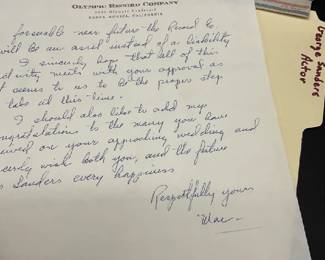 OLYMPIC RECORD COMPANY
SANTA MONICA, CALIFORNIA
foreseeable near future the Record Co
will be an asset instead of a liability
I sincerely hope that all of this
activity meets with your approval as
it seems to us to be the proper step
take at this time.
I should also like to add my
congratulations to the many you have
received on your approaching wedding and
sincerely wish both you, and the future
Sanders every happiness
Respectfully yours
George Sanders
Actor